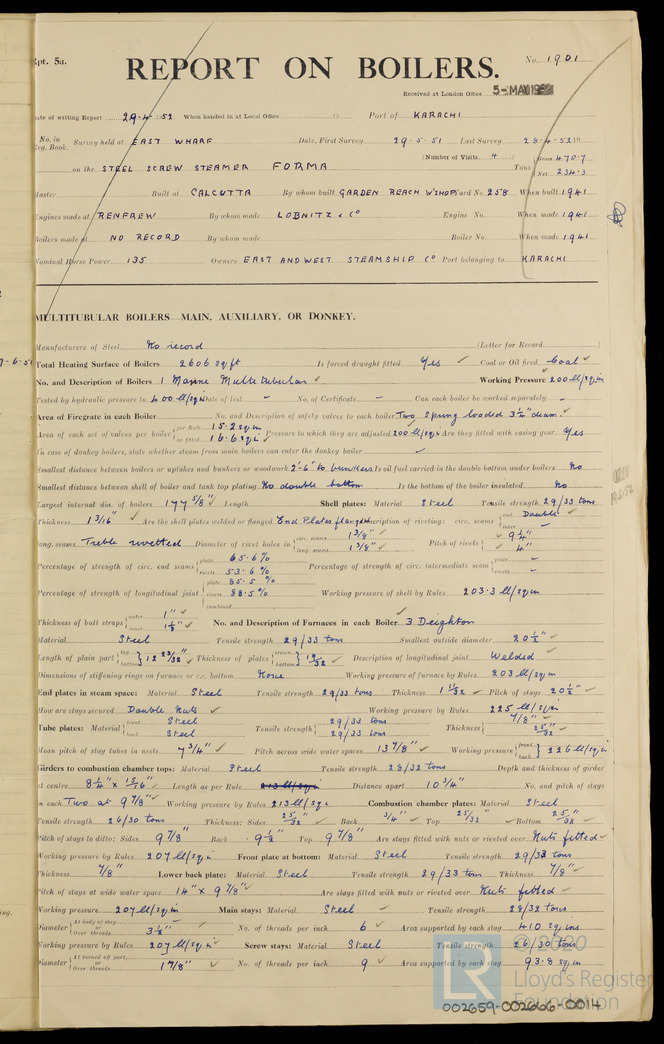 Rpt. 5a.
No. 1901
REPORT ON BOILERS.
Received at London Office 5-MAY 1952
Date of writing Report 29-4-1952 When handed in at Local Office 19 Port of KARACHI
No. in Reg. Book. Survey held at EAST WHARF Date, First Survey 29-5-51 Last Survey 28-4-52 19
(Number of Visits 4)
on the STEEL SCREW STEAMER FORMA Tons Gross 4707 Net 2343
Master Built at CALCUTTA By whom built GARDEN REACH W'SHOPS Yard No. 258 When built 1941
Engines made at RENFREW By whom made LOBNITZ & Co Engine No. When made 1941
Boilers made at NO RECORD By whom made Boiler No. When made 1941
Nominal Horse Power 135 Owners EAST AND WEST STEAMSHIP Co Port belonging to KARACHI
MULTITUBULAR BOILERS MAIN, AUXILIARY, OR DONKEY.
Manufacturers of Steel No record (Letter for Record )
Total Heating Surface of Boilers 2606 sq ft Is forced draught fitted Yes ✓ Coal or Oil fired Coal ✓
No. and Description of Boilers 1 Marine Multitubular ✓ Working Pressure 200 lb/sq in
Tested by hydraulic pressure to 400 lb/sq in Date of test - No. of Certificate - Can each boiler be worked separately -
Area of Firegrate in each Boiler No. and Description of safety valves to each boiler Two Spring loaded 3 1/4" diam ✓
Area of each set of valves per boiler per Rule 15.2 sq in as fitted 16.6 sq in ✓ Pressure to which they are adjusted 200 lb/sq in Are they fitted with easing gear Yes
In case of donkey boilers, state whether steam from main boilers can enter the donkey boiler ✓
Smallest distance between boilers or uptakes and bunkers or woodwork 2'-6" to bunkers Is oil fuel carried in the double bottom under boilers No
Smallest distance between shell of boiler and tank top plating No double bottom Is the bottom of the boiler insulated No
Largest internal dia. of boilers 177 5/8" ✓ Length Shell plates: Material Steel Tensile strength 29/33 tons
Thickness 1 3/16" ✓ Are the shell plates welded or flanged End Plates flanged Description of riveting: circ. seams end Double ✓ inter -
long. seams Treble rivetted Diameter of rivet holes in circ. seams 1 3/8" ✓ long. seams 1 3/8" ✓ Pitch of rivets ✓ 9 1/4" ✓ 4"
Percentage of strength of circ. end seams plate 65.6% rivets 53.6% Percentage of strength of circ. intermediate seam plate - rivets -
Percentage of strength of longitudinal joint plate 85.5% rivets 88.5% combined Working pressure of shell by Rules 203.3 lb/sq in
Thickness of butt straps outer 1" ✓ inner 1 1/8" ✓ No. and Description of Furnaces in each Boiler 3 Deighton ✓
Material Steel Tensile strength 29/33 tons Smallest outside diameter 20 1/2" ✓
Length of plain part top bottom 12 23/32" ✓ Thickness of plates crown bottom 19/32 ✓ Description of longitudinal joint Welded ✓
Dimensions of stiffening rings on furnace or c.c. bottom None Working pressure of furnace by Rules 203 lb/sq in
End plates in steam space: Material Steel Tensile strength 29/33 tons Thickness 1 11/32 ✓ Pitch of stays 20 1/2" ✓
How are stays secured Double Nuts ✓ Working pressure by Rules 225 lb/sq in
Tube plates: Material front Steel back Steel Tensile strength 29/33 tons 29/33 tons Thickness 7/8" ✓ 25/32" ✓
Mean pitch of stay tubes in nests 7 3/4" ✓ Pitch across wide water spaces 13 7/8" ✓ Working pressure front back 226 lb/sq in
Girders to combustion chamber tops: Material Steel Tensile strength 28/32 tons Depth and thickness of girder
at centre 8 1/4" x 15/16" ✓ Length as per Rule Distance apart 10 3/4" No. and pitch of stays
in each Two at 9 7/8" ✓ Working pressure by Rules 213 lb/sq in Combustion chamber plates: Material Steel
Tensile strength 26/30 tons Thickness: Sides 25/32" ✓ Back 3/4" ✓ Top 25/32 ✓ Bottom 25/32" ✓
Pitch of stays to ditto: Sides 9 7/8" Back 9 1/2" Top 9 7/8" Are stays fitted with nuts or riveted over Nuts fitted ✓
Working pressure by Rules 207 lb/sq in Front plate at bottom: Material Steel Tensile strength 29/33 tons
Thickness 7/8" ✓ Lower back plate: Material Steel Tensile strength 29/33 tons Thickness 7/8" ✓
Pitch of stays at wide water space 14" x 9 7/8" ✓ Are stays fitted with nuts or riveted over Nuts fitted ✓
Working pressure 207 lb/sq in Main stays: Material Steel ✓ Tensile strength 28/32 tons
Diameter At body of stay or Over threads 3 1/2" ✓ No. of threads per inch 6 ✓ Area supported by each stay 410 sq ins
Working pressure by Rules 207 lb/sq in ✓ Screw stays: Material Steel Tensile strength 26/30 tons
Diameter At turned off part or Over threads 1 7/8" ✓ No. of threads per inch 9 ✓ Area supported by each stay 93.8 sq in
© 2020
LR
Lloyd's Register
Foundation
002659-002666-0014